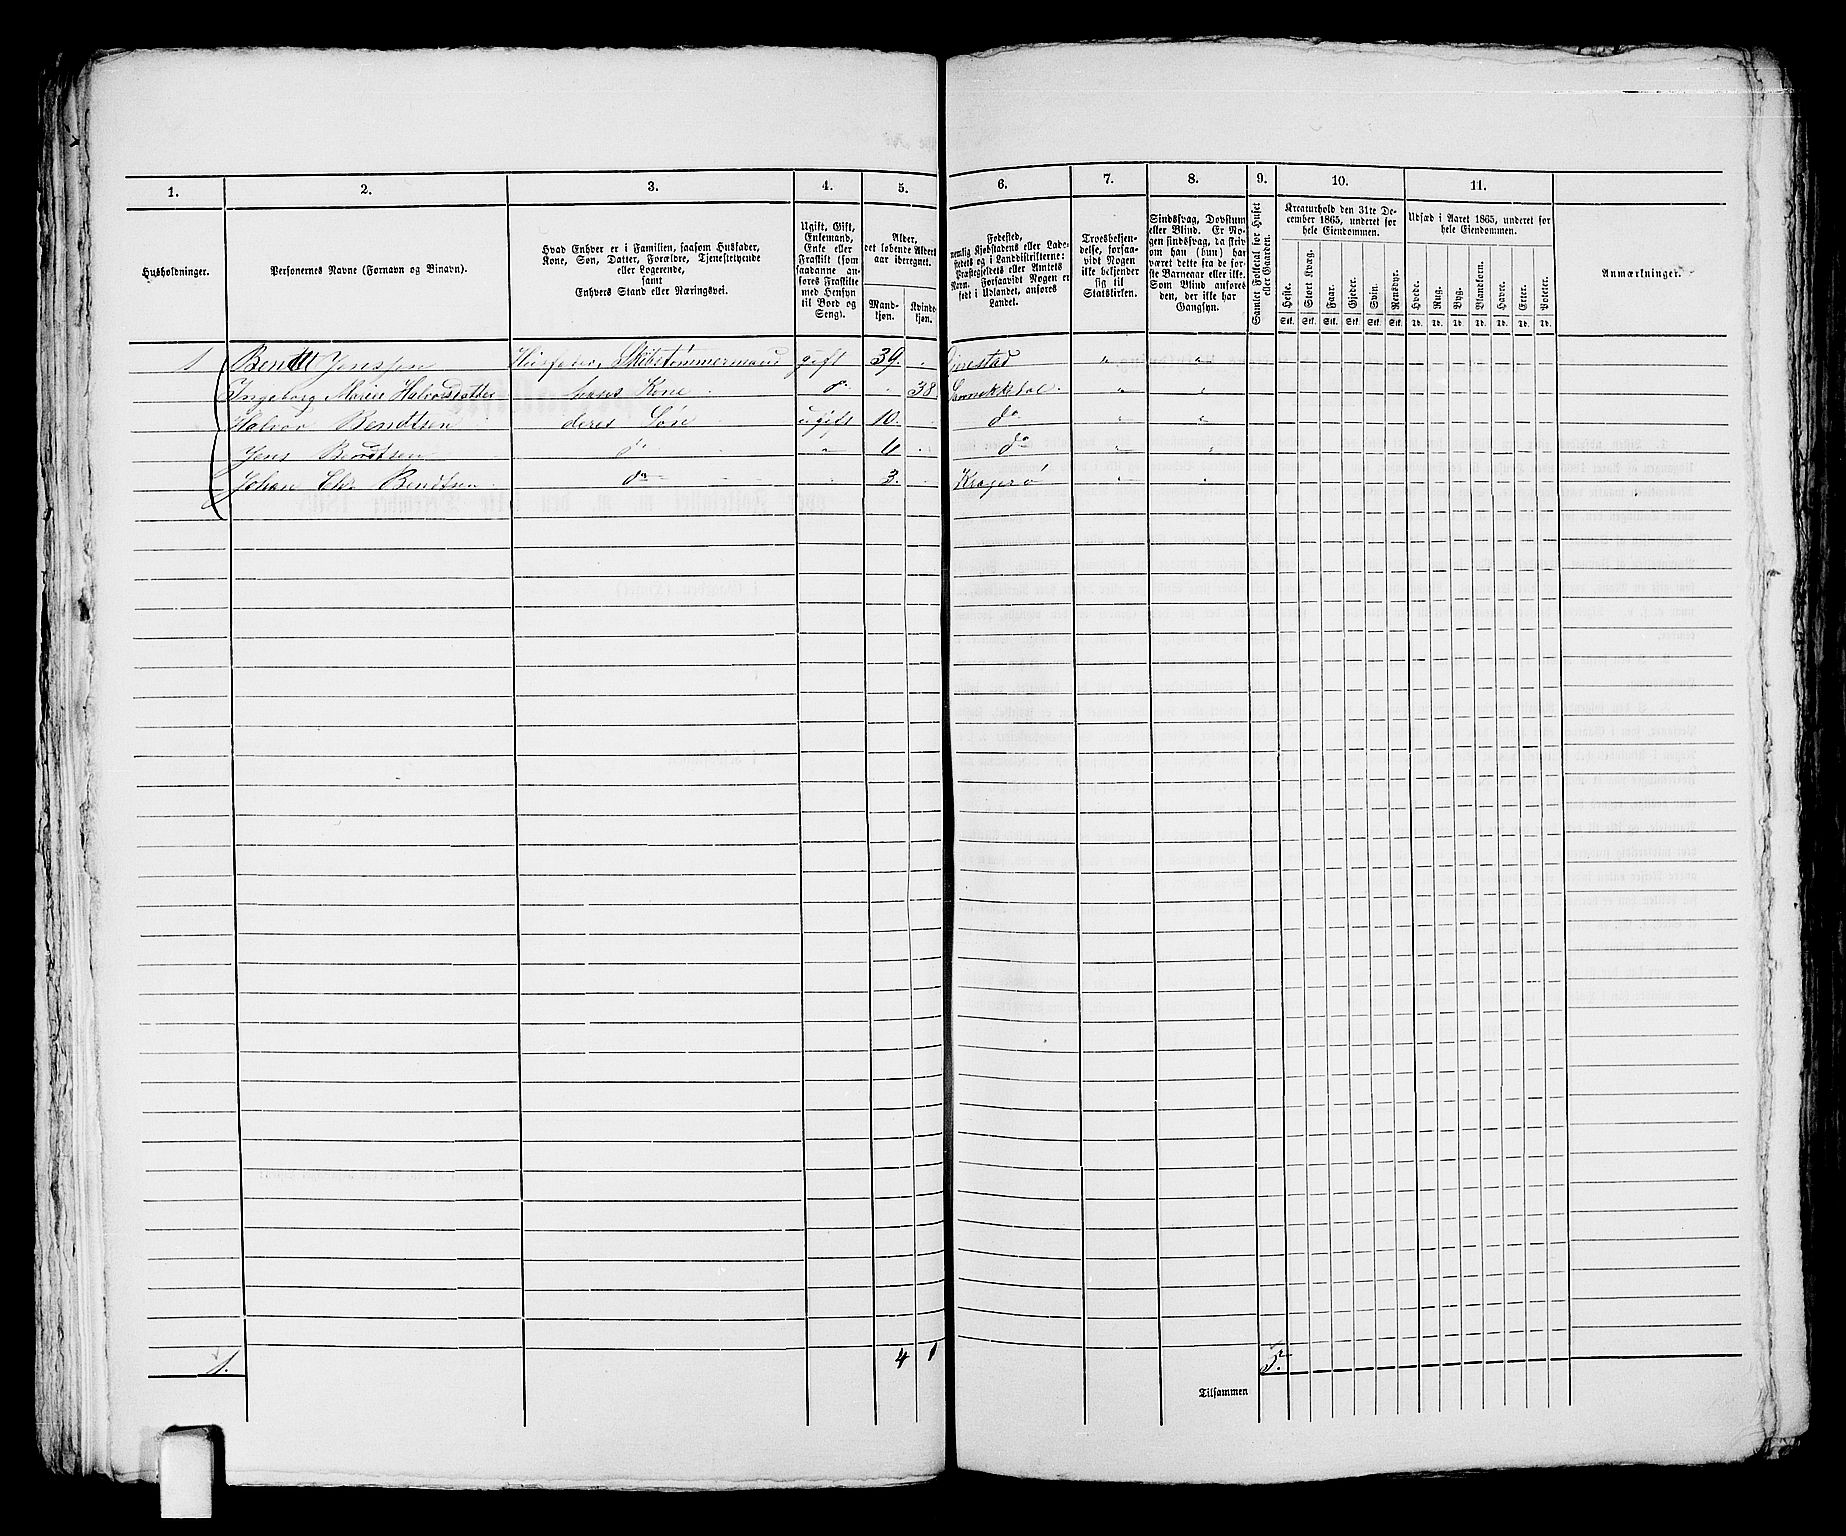 1. 2. 3. 4. 5. 6. 7. 8. 9. 10. 11.
Husholdninger.
Personernes Navne (Fornavn og Binavn).
Hvad Enhver er i Familien, saasom Husfader,
Kone, Søn, Datter, Forældre, Tjenestetyende
eller Logerende,
samt
Enhvers Stand eller Næringsvei.
Ugift, Gift,
Enkemand,
Enke eller
Fraskilt (som
saadanne an-
føres Fraskilte
med Hensyn
til Bord og
Seng).
Alder,
det løbende Alders-
aar iberegnet.
Mand-
kjøn.
Kvinde-
kjøn.
Fødested,
nemlig Kjøbstadens eller Lade-
stedets og i Landdistrikterne:
Præstegjeldets eller Amtets
Navn. Forsaavidt Nogen er
født i Udlandet, anføres
Landet.
Troesbekjen-
delse, forsaa-
vidt Nogen
ikke bekjender
sig til
Statskirken.
Sindssvag, Døvstum
eller Blind. Er No-
gen sindssvag, da skriv
om han (hun) har
været dette fra de før-
ste Barneaar eller ikke.
Som Blind anføres
den, der ikke har
Gangsyn.
Samlet Folketal for Huset
eller Gaarden.
Kreaturhold den 31te De-
cember 1865, underet for
hele Eiendommen.
Heste. Stort Kvæg. Faar. Gjeder. Svin. Rensdyr.
Stk. Stk. Stk. Stk. Stk. Stk.
Udsæd i Aaret 1865, underet for
hele Eiendommen.
Hvede. Rug. Byg. Blandkorn. Havre. Erter. Poteter.
Td. Td. Td. Td. Td. Td. Td.
Anmærkninger.
1 Bendt Jenssen Husfader, Skibstømmermand gift 39. " Gjerestad " "
Ingeborg Marie Halvorsdatter hans Kone do " 38 Sannikedal " "
Halvor Bendtsen deres Søn ugift 10. do " "
Jens Bendtsen do " 6 do " "
Johan Chr Bendtsen do " 3. Kragerø " "
1. 4 1 5.
Tilsammen